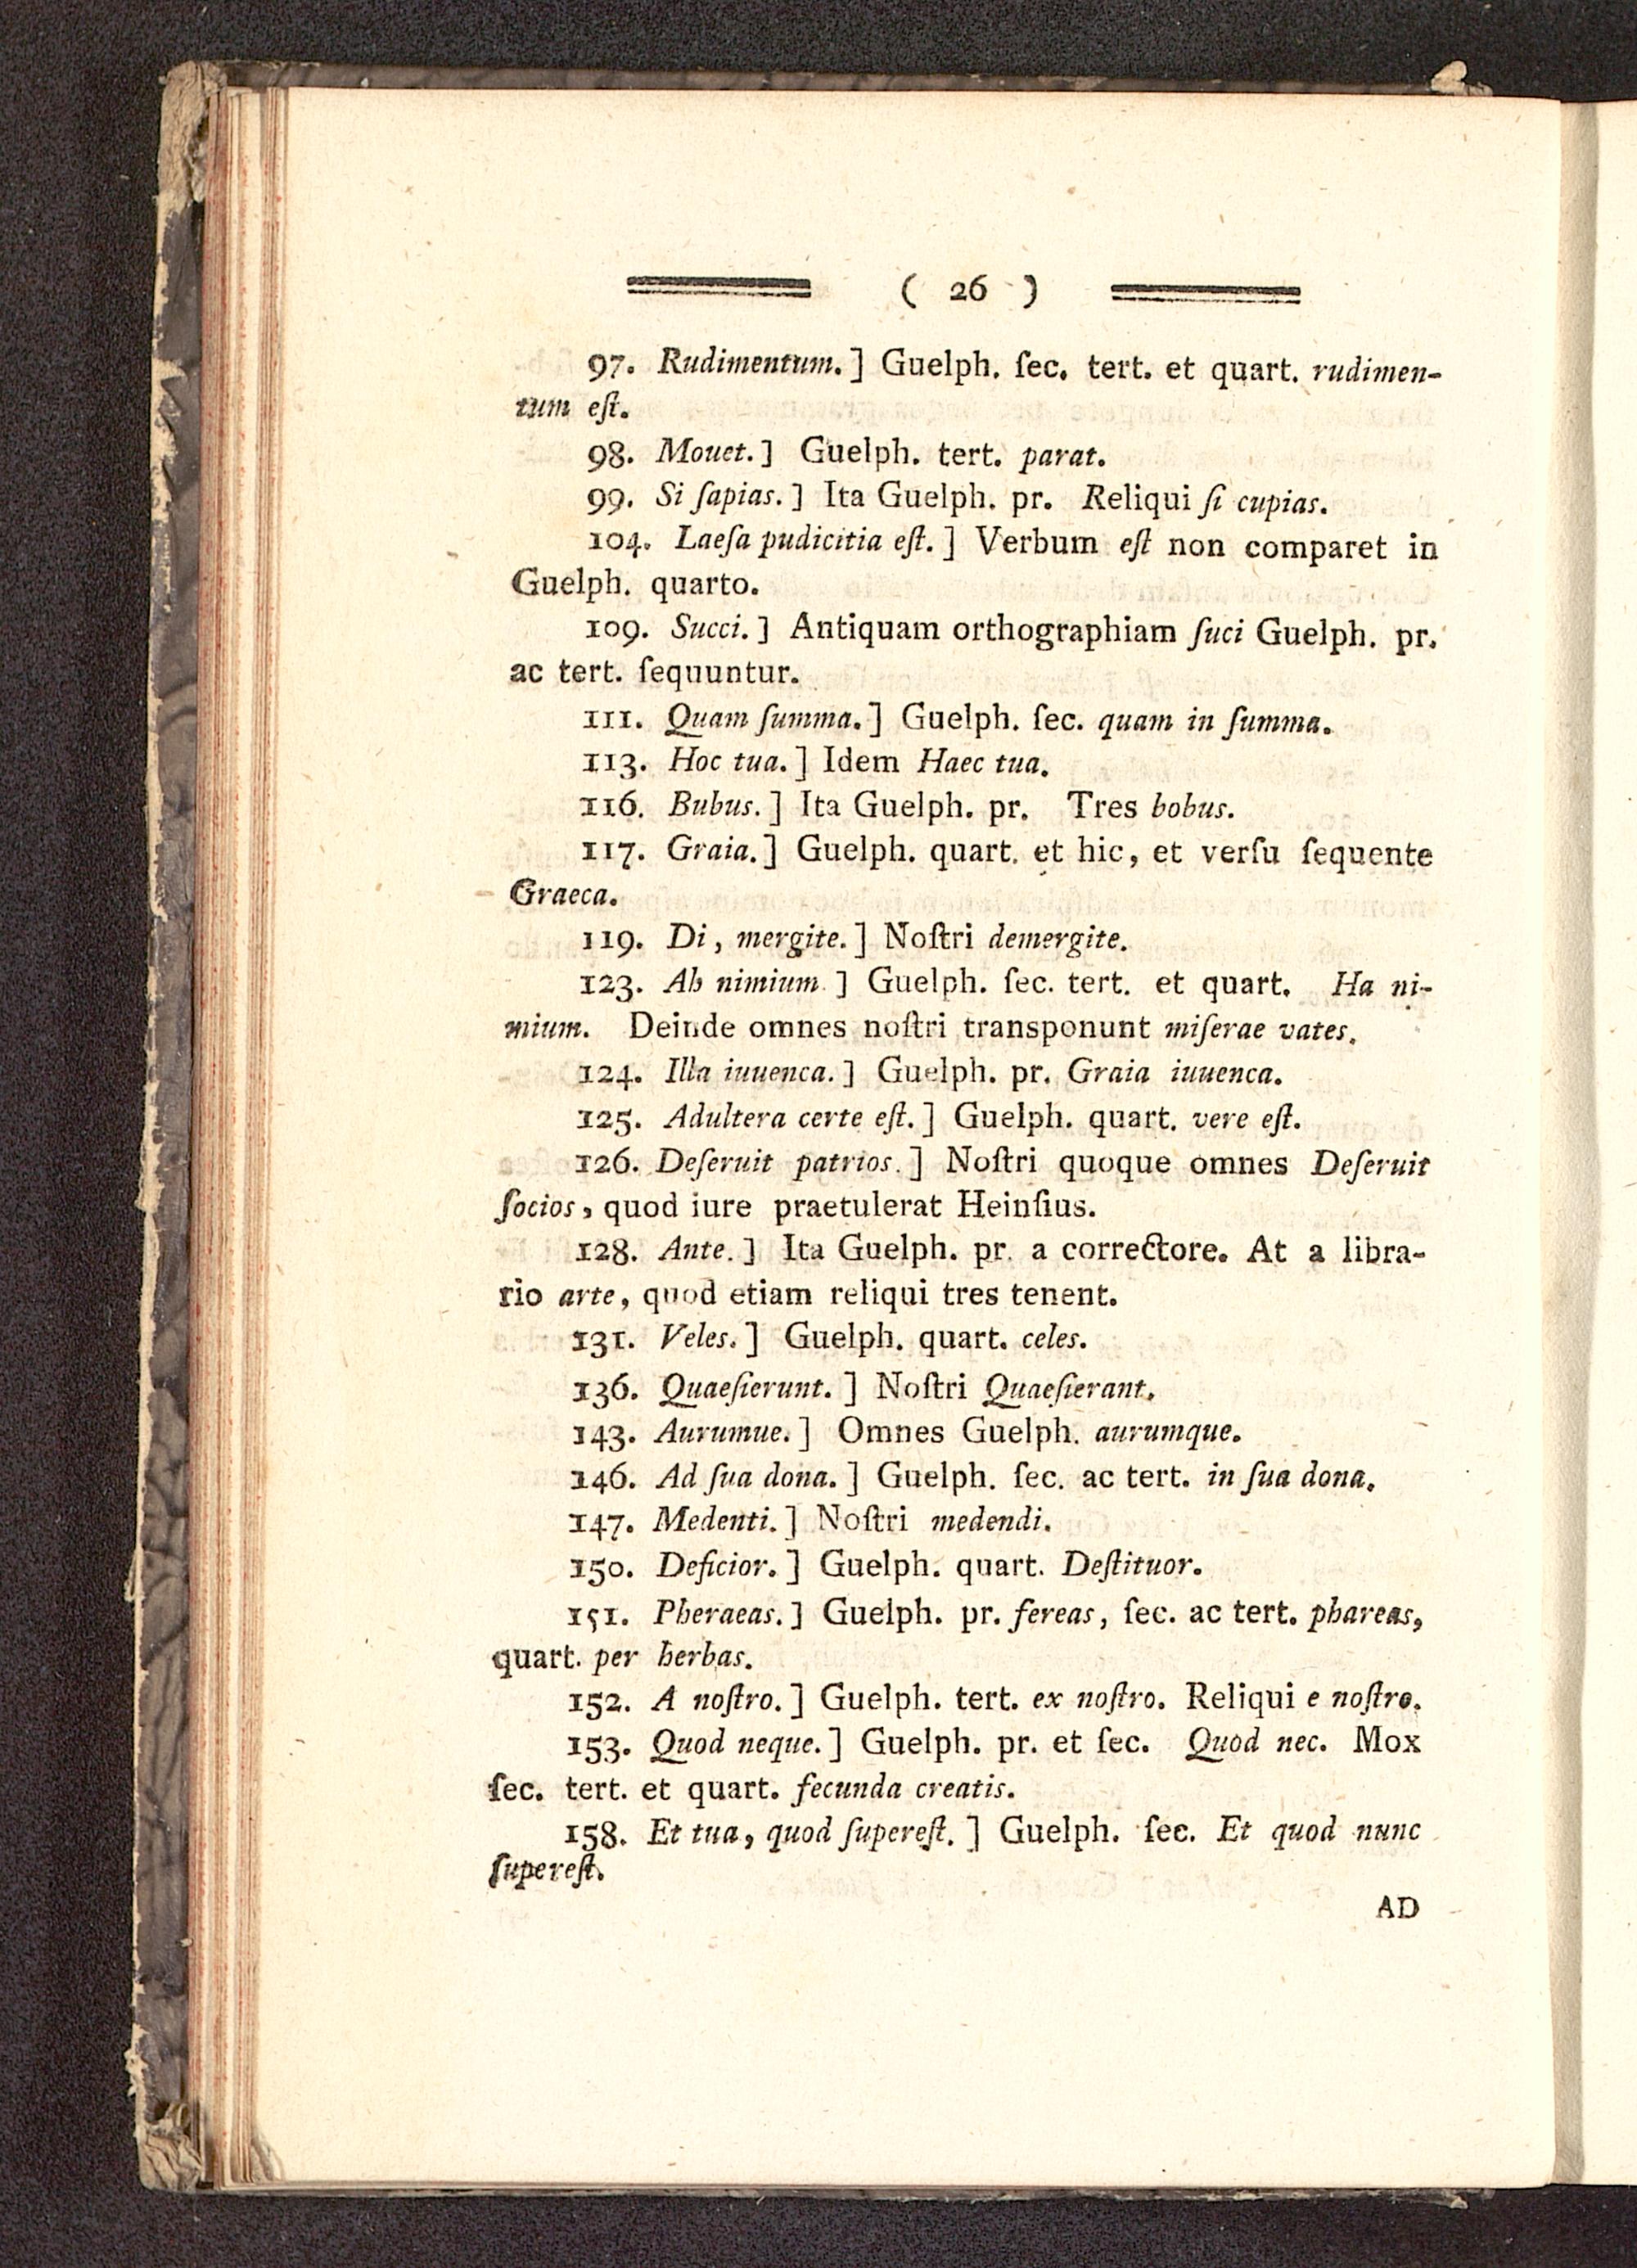 ( 26 )
97. Rudimentum. ] Guelph. ſec. tert. et quart. rudimen-
tum eſt.
98. Mouet. ] Guelph. tert. parat.
99. Si ſapias. ] Ita Guelph. pr. Reliqui ſi cupias.
104. Laeſa pudicitia eſt. ] Verbum eſt non comparet in
Guelph. quarto.
109. Succi. ] Antiquam orthographiam ſuci Guelph. pr.
ac tert. ſequuntur.
111. Quam ſumma. ] Guelph. ſec. quam in ſumma.
113. Hoc tua. ] Idem Haec tua.
116. Bubus. ] Ita Guelph. pr. Tres bobus.
117. Graia. ] Guelph. quart. et hic, et verſu ſequente
Graeca.
119. Di, mergite. ] Noſtri demergite.
123. Ah nimium ] Guelph. ſec. tert. et quart. Ha ni-
mium. Deinde omnes noſtri transponunt miſerae vates.
124. Illa iuuenca. ] Guelph. pr. Graia iuuenca.
125. Adultera certe eſt. ] Guelph. quart. vere eſt.
126. Deſeruit patrios. ] Noſtri quoque omnes Deſeruit
ſocios, quod iure praetulerat Heinſius.
128. Ante. ] Ita Guelph. pr. a correctore. At a libra-
rio arte, quod etiam reliqui tres tenent.
131. Veles. ] Guelph. quart. celes.
136. Quaeſierunt. ] Noſtri Quaeſierant.
143. Aurumue. ] Omnes Guelph. aurumque.
146. Ad ſua dona. ] Guelph. ſec. ac tert. in ſua dona.
147. Medenti. ] Noſtri medendi.
150. Deficior. ] Guelph. quart. Deſtituor.
151. Pheraeas. ] Guelph. pr. fereas, ſec. ac tert. phareas,
quart. per herbas.
152. A noſtro. ] Guelph. tert. ex noſtro. Reliqui e noſtro.
153. Quod neque. ] Guelph. pr. et ſec. Quod nec. Mox
ſec. tert. et quart. fecunda creatis.
158. Et tua, quod ſupereſt. ] Guelph. ſec. Et quod nunc
ſupereſt.
AD